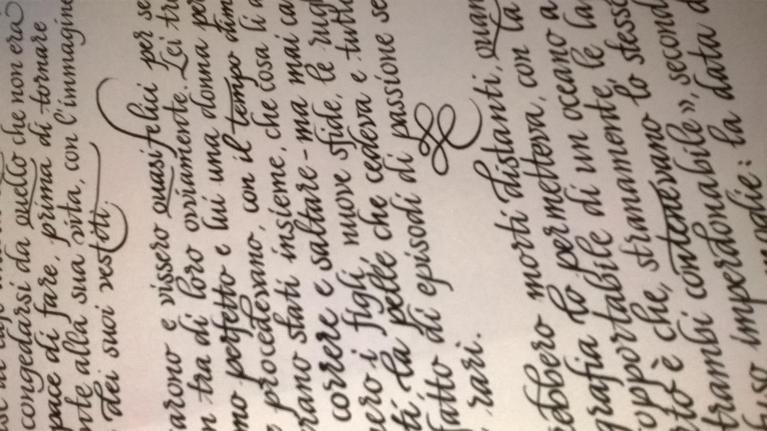 congedarsi da quello che non era
pace di fare, prima di tornare
nte alla sua vita, con l'immagine
dei suoi vestiti.
arono e vissero quasi felici per se
n tra di loro ovviamente. Lei tro
mo perfetto e lui una donna per
procedevano, con il tempo dim
rano stati insieme, che cosa li a
correre e saltare - ma mai ca
ero i figli, nuove sfide, le rug
ti, la pelle che cedeva e tutto
fatto di episodi di passione se
rari.
ebbero morti distanti, quan
grafia lo permetteva, con la
opportabile di un oceano a
rto è che, stranamente, le la
trambi contenevano lo stesso
imperdonabile», second
la data d